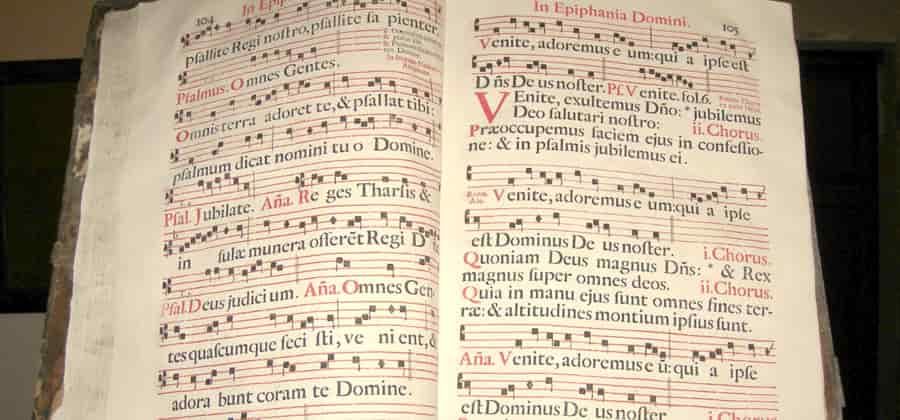 104
In Epip
psallite Regi nostro, psallite sa pienter.
Psalmus. Omnes Gentes.
Omnis terra adoret te, & psallat tibi:
psalmum dicat nomini tu o Domine.
Psal. Jubilate. Aña. Re ges Tharsis &
in sulæ munera offerēt Regi D
Psal. Deus judicium. Aña. Omnes Gen
tes quascumque feci sti, ve ni ent, &
adora bunt coram te Domine.
In Epiphania Domini. 105
Venite, adoremus e um: qui a ipse est
Dñs De us noster. Ps. Venite. fol. 6.
VEnite, exultemus Dño: * jubilemus
Deo salutari nostro: ii. Chorus.
Præoccupemus faciem ejus in confessio-
ne: & in psalmis jubilemus ei.
Venite, adoremus e um: qui a ipse
est Dominus De us noster. i. Chorus.
Quoniam Deus magnus Dñs: * & Rex
magnus super omnes deos. ii. Chorus.
Quia in manu ejus sunt omnes fines ter-
ræ: & altitudines montium ipsius sunt.
Aña. Venite, adoremus e ū: qui a ipse
est Dominus De us noster. i. Chorus